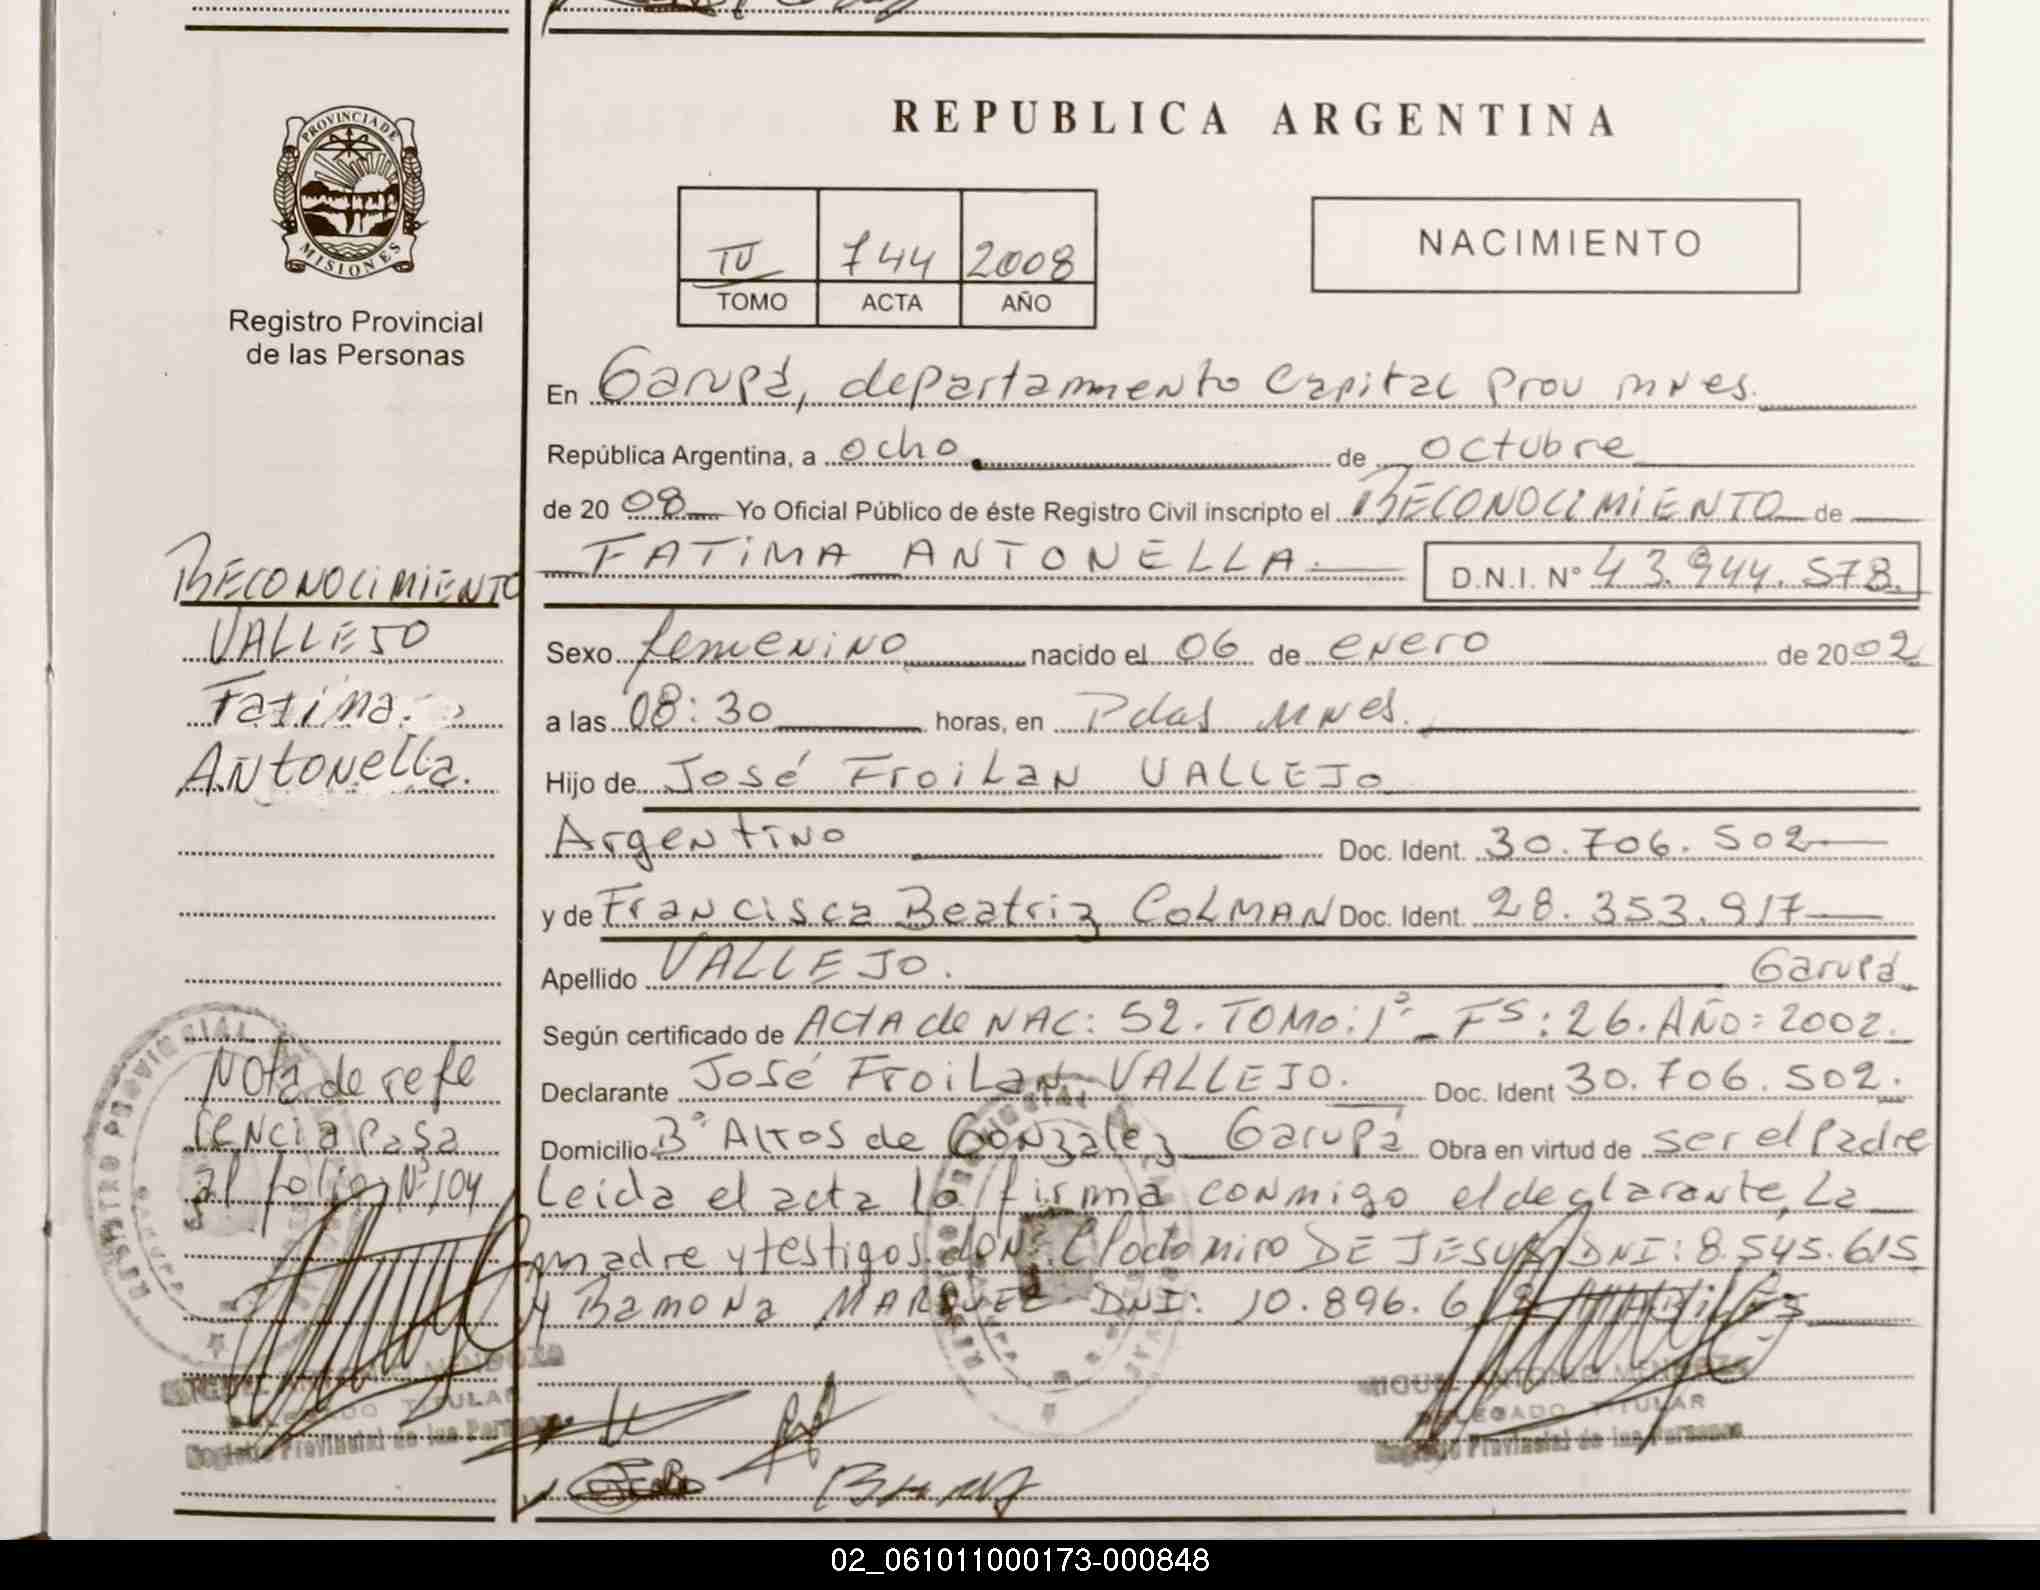 REPUBLICA ARGENTINA
PROVINCIA DE
MISIONES
Registro Provincial
de las Personas
IV 744 2008
TOMO ACTA AÑO
NACIMIENTO
En Garupá, departamento Capital Prov Mnes.
República Argentina, a ocho de octubre
de 2008 Yo Oficial Público de éste Registro Civil inscripto el RECONOCIMIENTO de
FATIMA ANTONELLA. D.N.I. Nº 43.944.578.
Sexo femenino nacido el 06 de enero de 2002
a las 08:30 horas, en Pdas Mnes.
Hijo de José Froilan VALLEJO
Argentino Doc. Ident. 30.706.502
y de Francisca Beatriz COLMAN Doc. Ident. 28.353.917
Apellido VALLEJO. Garupá
Según certificado de ACTA de NAC: 52. TOMO: 1º FS: 26. AÑO: 2002.
Declarante José Froilan VALLEJO. Doc. Ident 30.706.502.
Domicilio Bº Altos de Gonzalez Garupá Obra en virtud de ser el Padre
Leida el acta la firma conmigo el declarante, la
madre y testigos don: Clodomiro DE JESUS DNI: 8.545.615
y Ramona MARQUEZ DNI: 10.896.6
RECONOCIMIENTO
VALLEJO
Fatima
Antonella.
Nota de refe
rencia pasa
al folio Nº 104
MIGUEL ANTONIO MENDOZA
DELEGADO TITULAR
Registro Provincial de las Personas
MIGUEL ANTONIO MENDOZA
DELEGADO TITULAR
Registro Provincial de las Personas
02_061011000173-000848